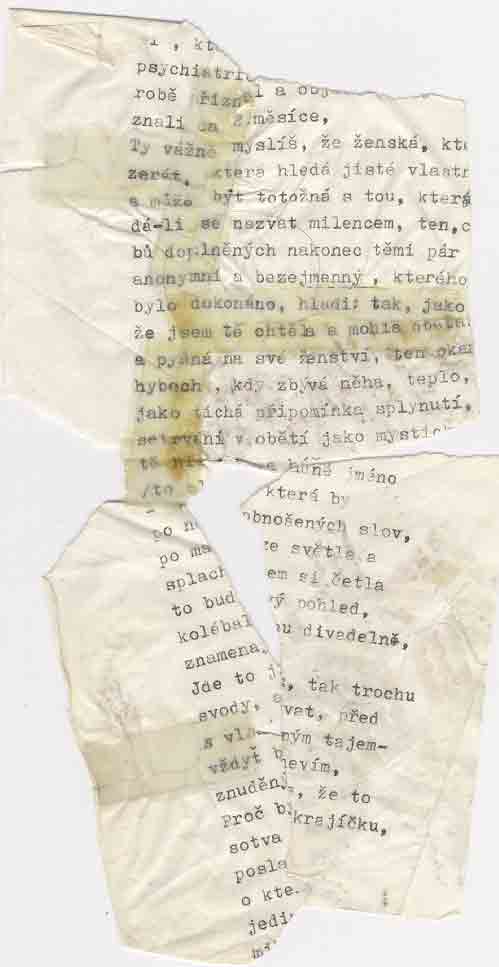 psychiatri
robě přizn l a obj
znali za 2 měsíce,
Ty vážně myslíš, že ženská, kte
žerát, která hledá jisté vlastn
a může být totožná s tou, která
dá-li se nazvat milencem, ten,c
bů doplněných nakonec těmi pár
anonymní a bezejmenný, kterého
bylo dokonáno, hladí: tak, jako
že jsem tě chtěla a mohla oběta
a pyšná na své ženství, ten okam
hybech, kdy zbývá něha, teplo,
jako tichá připomínka splynutí,
setrvání v obětí jako mystick
tě jméno
/to která by
po n obnošených slov,
po ma ze světla a
splach em si četla
to bud vý pohled,
kolébal nu divadelně,
znamena,
Jde to j , tak trochu
svody, a vat, před
s vla ným tajem-
vždyť b nevím,
znuděný , že to
Proč b krajíčku,
sotva
posla
o kte
jedi